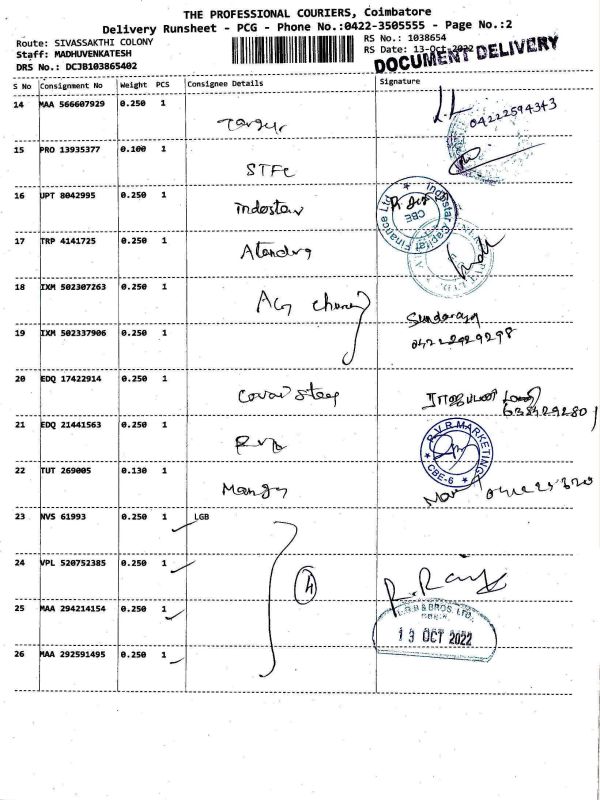 THE PROFESSIONAL COURIERS, Coimbatore
Delivery Runsheet - PCG - Phone No.:0422-3505555 - Page No.:2
Route: SIVASSAKTHI COLONY
Staff: MADHUVENKATESH
DRS No.: DCJB103865402
RS No.: 1038654
RS Date: 13-Oct-2022
DOCUMENT DELIVERY
S No Consignment No Weight PCS Consignee Details Signature
14 MAA 566607929 0.250 1
04222594343
15 PRO 13935377 0.100 1 STFC
16 UPT 8042995 0.250 1 indostar
Indostar Capital Finance Ltd CBE
17 TRP 4141725 0.250 1
18 IXM 502307263 0.250 1
19 IXM 502337906 0.250 1
20 EDQ 17422914 0.250 1
21 EDQ 21441563 0.250 1
R.V.B MARKETING CBE-6
22 TUT 269005 0.130 1
23 NVS 61993 0.250 1 LGB
24 VPL 520752385 0.250 1
4
25 MAA 294214154 0.250 1
L.G.B & BROS. LTD.
13 OCT 2022
26 MAA 292591495 0.250 1